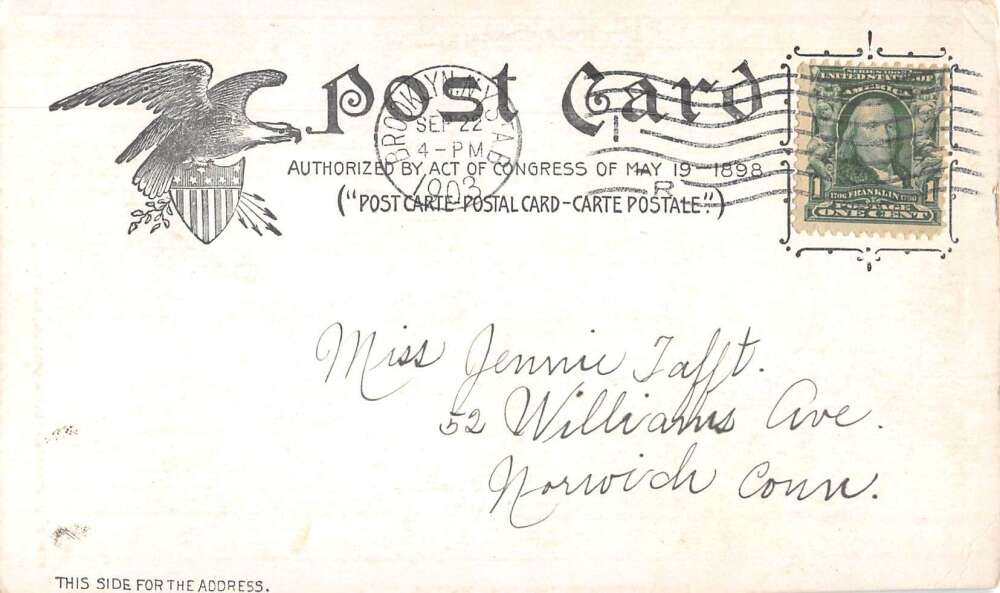 Post Card
AUTHORIZED BY ACT OF CONGRESS OF MAY 19-1898
("POST CARTE-POSTAL CARD-CARTE POSTALE".)
BROOKLYN, N.Y. STA. B
SEP 22
4-PM
1903
R
SERIES 1902
UNITED STATES OF
AMERICA
1706 FRANKLIN 1790
1 1
POSTAGE
ONE CENT
Miss Jennie Tafft.
52 Williams Ave.
Norwich Conn.
THIS SIDE FOR THE ADDRESS.